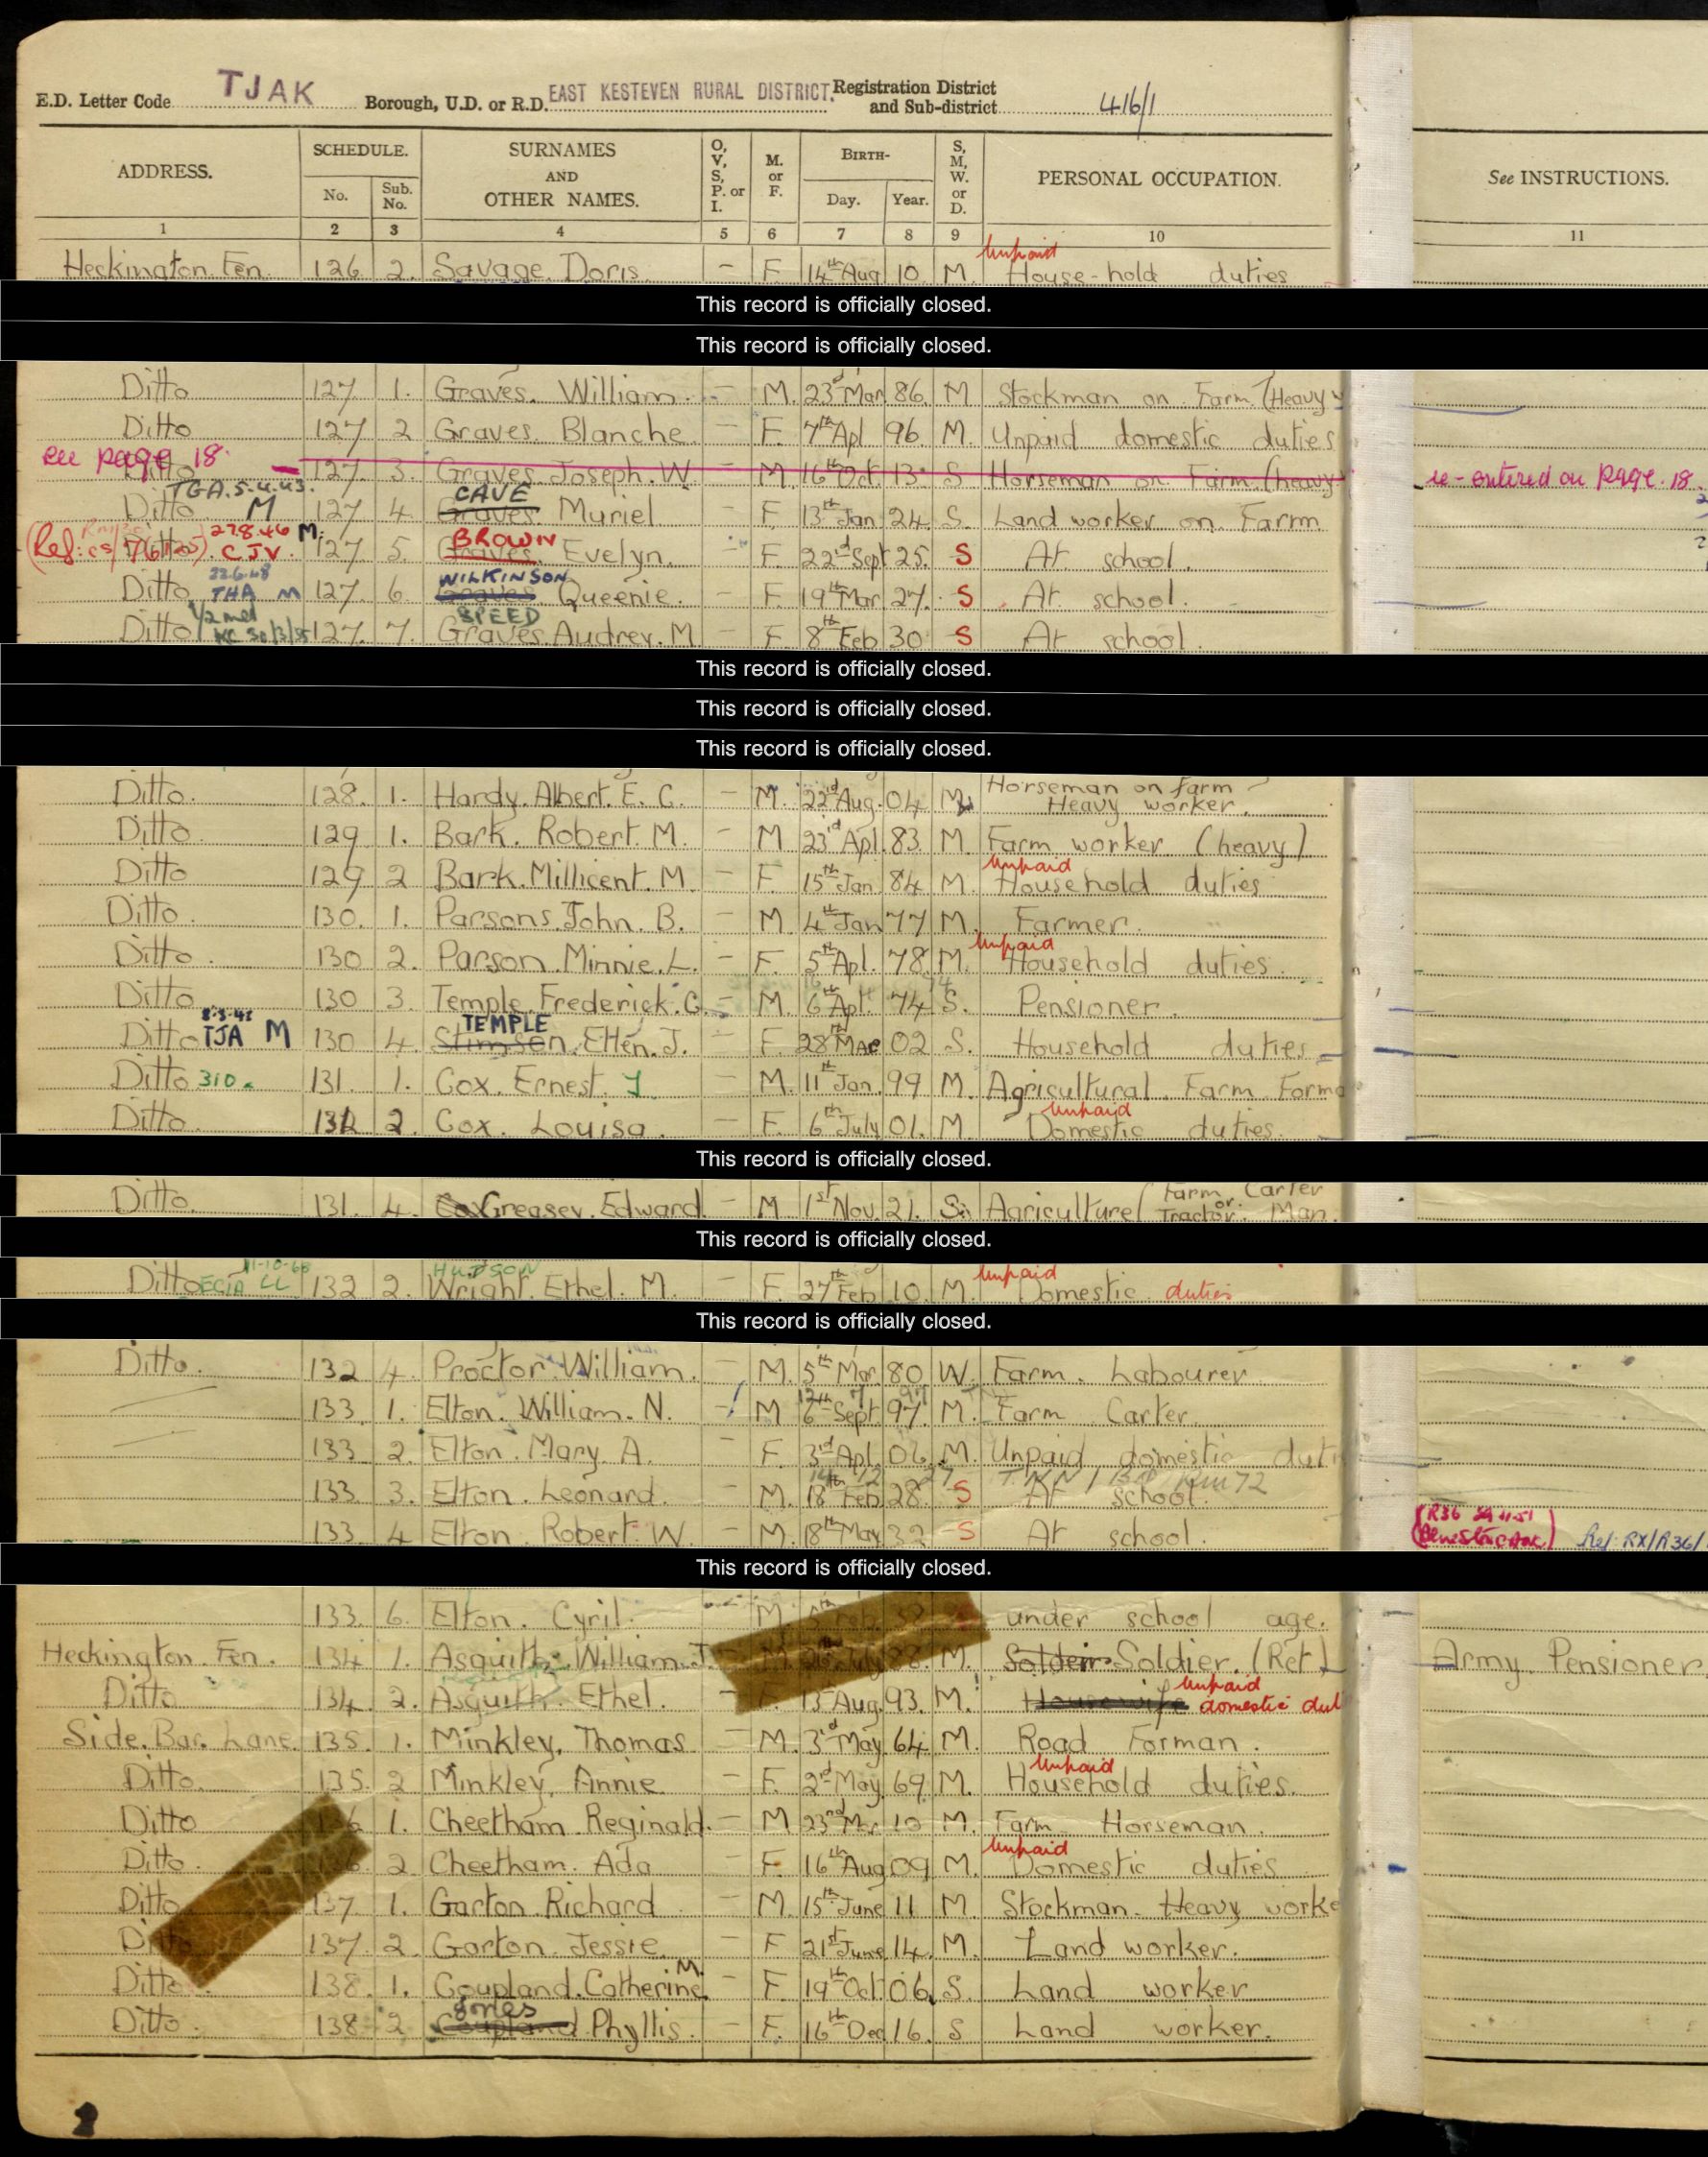 E.D. Letter Code TJAK Borough, U.D. or R.D. EAST KESTEVEN RURAL DISTRICT. Registration District and Sub-district 416/1
ADDRESS. SCHEDULE. No. Sub. No. SURNAMES AND OTHER NAMES. O, V, S, P. or I. M. or F. BIRTH- Day. Year. S, M, W. or D. PERSONAL OCCUPATION. See INSTRUCTIONS.
1 2 3 4 5 6 7 8 9 10 11
Heckington Fen. 126 2. Savage Doris. - F. 14th Aug 10. M. Unpaid House-hold duties
This record is officially closed.
This record is officially closed.
Ditto 127 1. Graves. William. - M. 23rd Mar 86. M Stockman on Farm (Heavy
Ditto 127 2 Graves. Blanche. - F. 7th Apl 96 M. Unpaid domestic duties
page 18. Ditto 127 3. Graves Joseph. W. - M. 16th Oct. 13. S Horseman on Farm (heavy re-entered on page. 18.
TGA. 5.4.43.
Ditto M 127 4. Graves CAVE Muriel - F. 13th Jan 24 S. Land worker on Farm
(Ref: 27.8.46 CJV. M. 127 5. Graves BROWN Evelyn. F. 22nd Sept 25. S At school.
Ditto 22.6.48 THA M 127. 6. Graves WILKINSON Queenie. - F. 19th Mar 27. S At school.
Ditto KC 30/3/55 127. 7. Graves SPEED Audrey. M. - F. 8th Feb 30 S At school.
This record is officially closed.
This record is officially closed.
This record is officially closed.
Ditto. 128. 1. Hardy. Albert. E. C. - M. 22nd Aug. 04 M. Horseman on farm Heavy worker.
Ditto. 129 1. Bark. Robert. M. - M 23rd Apl. 83. M. Farm worker (heavy)
Ditto 129 2 Bark. Millicent. M. - F. 15th Jan. 84 M. Unpaid Household duties
Ditto. 130. 1. Parsons. John. B. - M. 4th Jan 77 M. Farmer.
Ditto. 130 2. Parson. Minnie. L. - F. 5th Apl. 78 M. Unpaid Household duties.
Ditto. 130 3. Temple Frederick. G. - M. 6th Apl. 74 S. Pensioner.
Ditto TJA M 130 4. Stimson TEMPLE Ellen. J. F. 28th Mar 02 S. Household duties
Ditto 310. 131. 1. Cox. Ernest. - M. 11th Jan. 99 M. Agricultural Farm Forma
Ditto. 131 2. Cox. Louisa. - F. 6th July 01. M. Unpaid Domestic duties.
This record is officially closed.
Ditto. 131. 4. Cox Greasey. Edward - M. 1st Nov. 21. S. Agriculture ( Farm Carter or Tractor. Man.
This record is officially closed.
Ditto 11-10-60 132 2. Wright HUDSON Ethel. M. - F. 27th Feb 10. M. Unpaid Domestic duties
This record is officially closed.
Ditto. 132 4. Proctor William. - M. 5th Mar. 80 W. Farm. Labourer
133. 1. Elton. William. N. - M 6th Sept 97. M. Farm Carter
133 2. Elton. Mary. A. - F. 3rd Apl. 06 M. Unpaid domestic duti
133 3. Elton. Leonard. - M. 18th Feb 28 S At school.
133 4 Elton. Robert. W. - M. 18th May 32 S At school. R36 Ref: RX/R36/
This record is officially closed.
133. 6. Elton. Cyril. M. under school age.
Heckington Fen. 134 1. Asquith. William. J. M. July 88. M. Soldeir Soldier. (Ret) Army Pensioner
Ditto 134. 2. Asquith. Ethel. - F. 13th Aug. 93. M. Housewife Unpaid domestic dut
Side Bar Lane. 135. 1. Minkley, Thomas - M. 3rd May 64 M. Road Forman.
Ditto. 135. 2 Minkley, Annie - F. 2nd May 69 M. Unpaid Household duties.
Ditto 6 1. Cheetham Reginald. - M 23rd 10 M. Farm Horseman.
Ditto. 2 Cheetham. Ada - F. 16th Aug 09 M. Unpaid Domestic duties
Ditto 137 1. Garton Richard - M. 15th June 11 M. Stockman. Heavy worke
Ditto 137. 2 Garton. Jessie. - F 21st June 14. M. Land worker.
Ditto. 138. 1. Coupland. Catherine M. - F. 19th Oct 06. S. Land worker
Ditto. 138 2 Coupland Jones Phyllis. - F. 16th Dec 16. S Land worker.